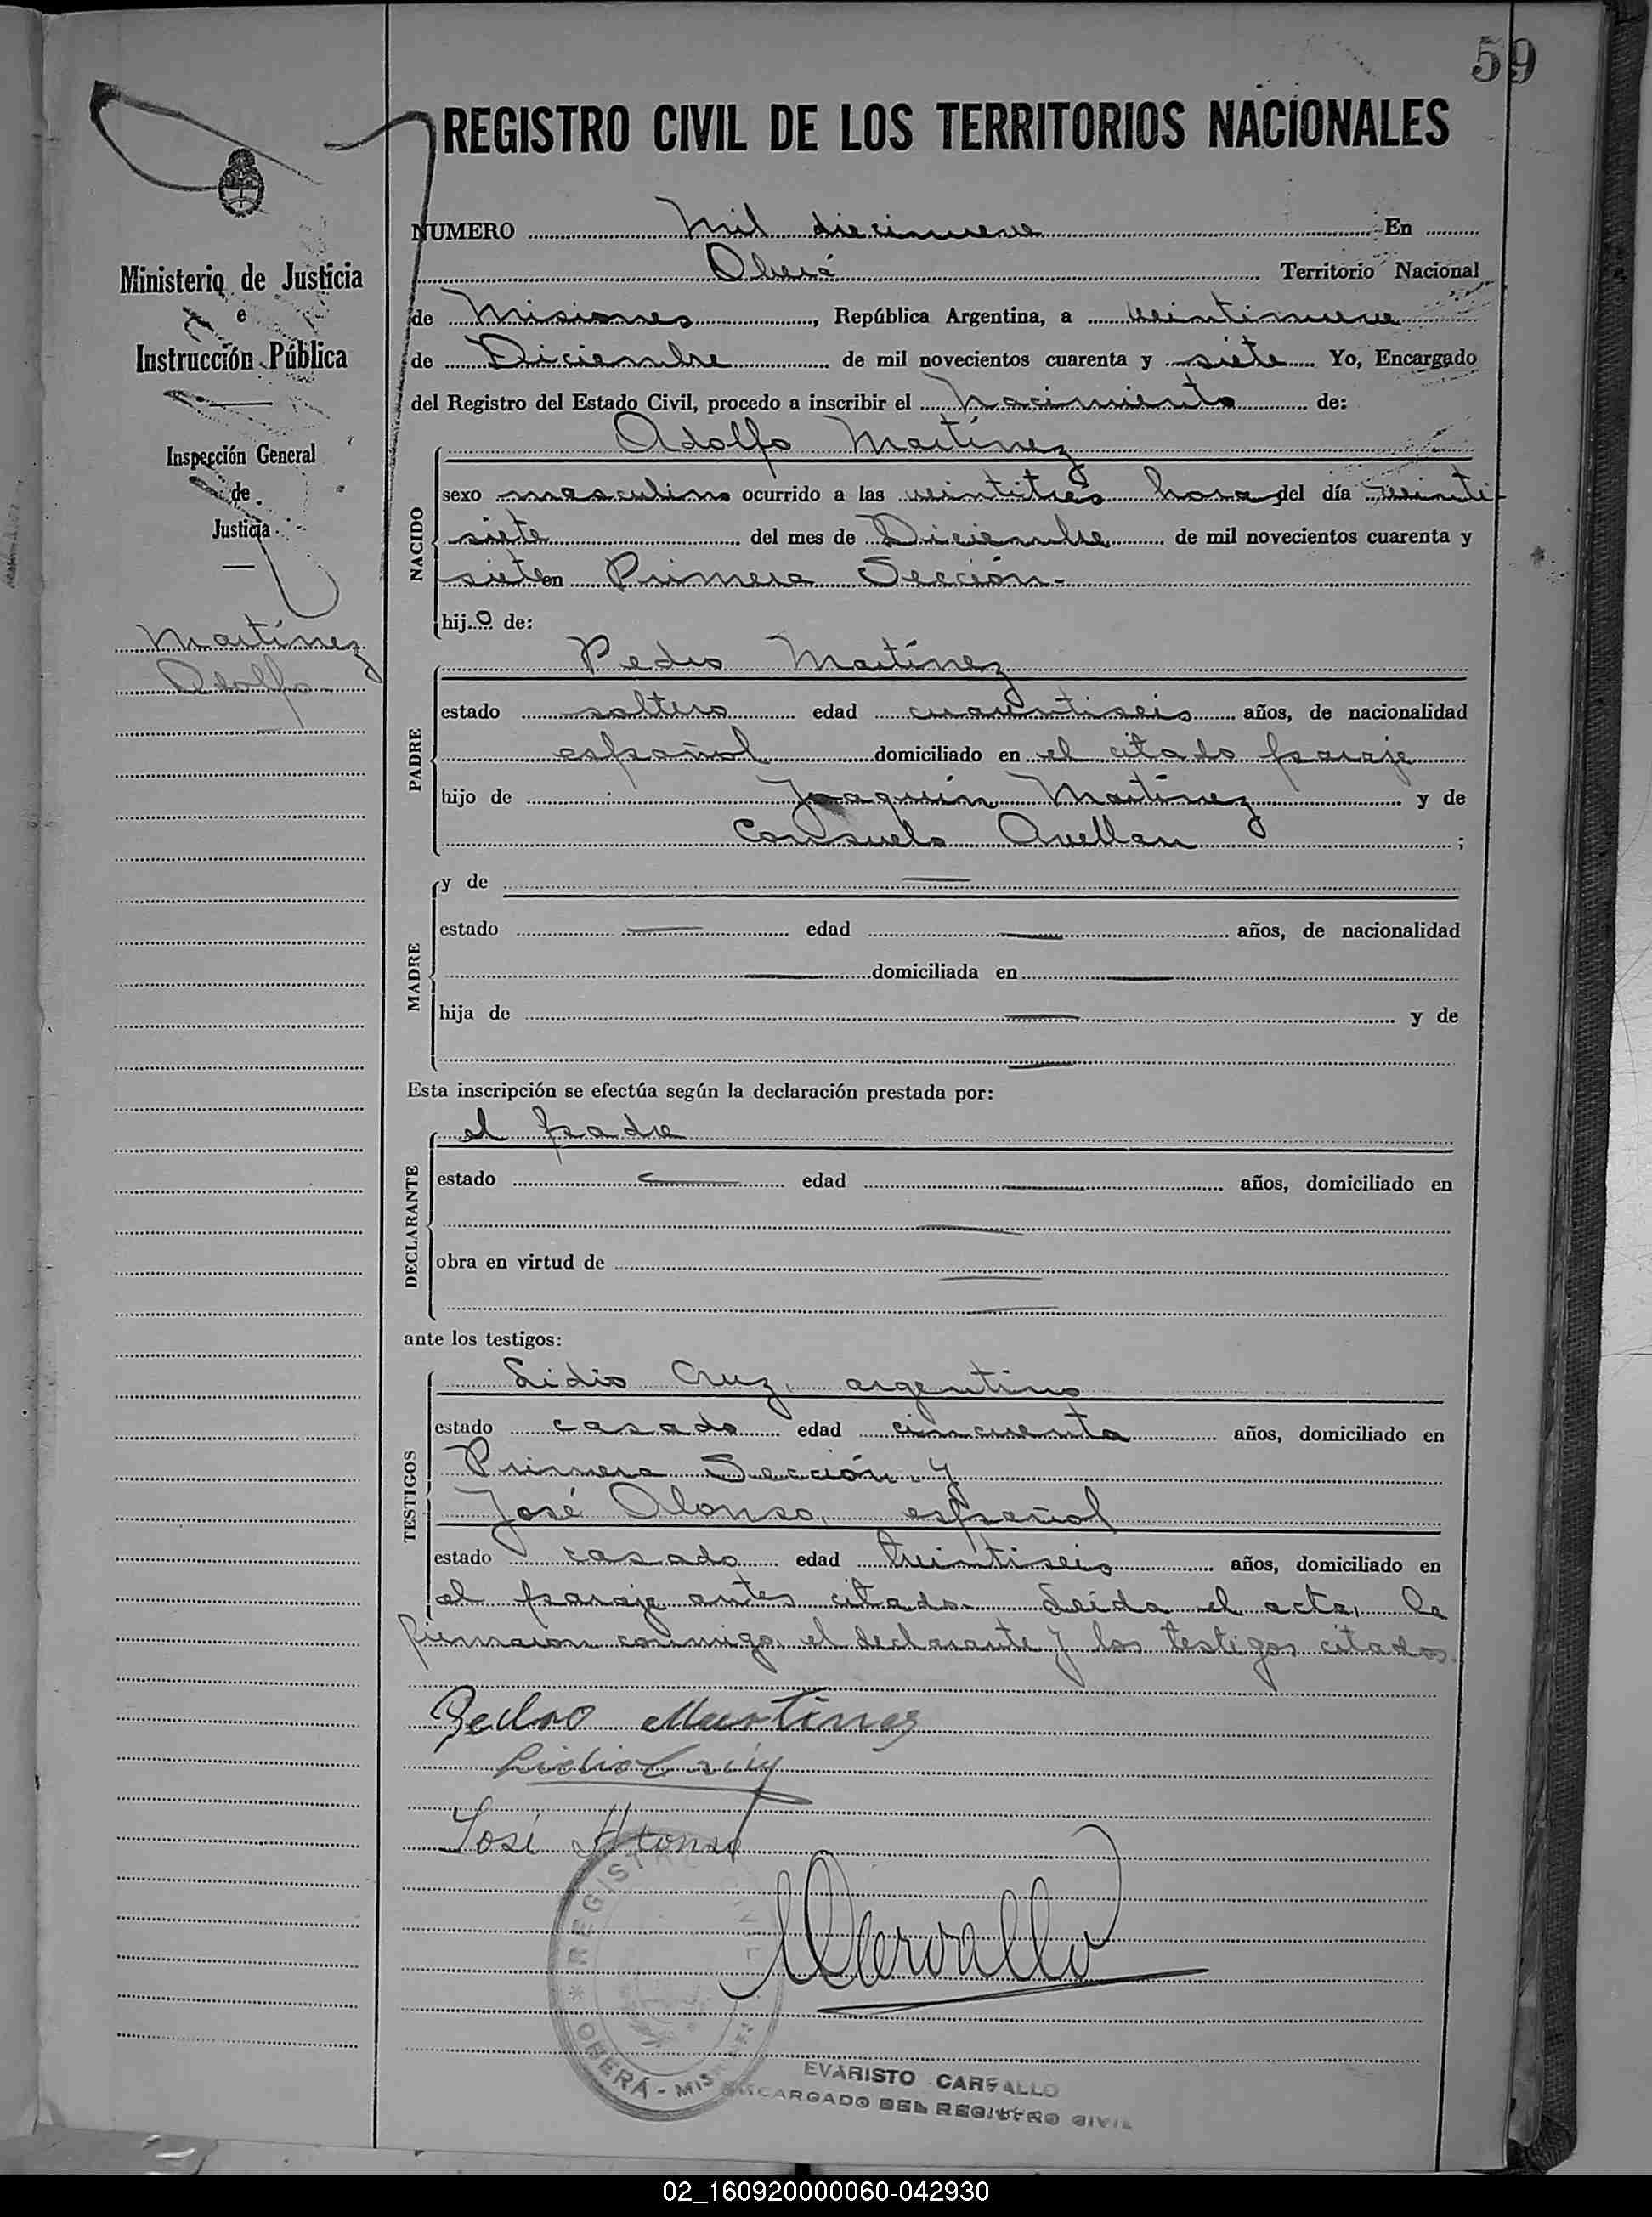 59
REGISTRO CIVIL DE LOS TERRITORIOS NACIONALES
Ministerio de Justicia
e
Instrucción Pública
Inspección General
de
Justicia
Martínez
Adolfo
NUMERO Mil diecinueve En
Oberá Territorio Nacional
de Misiones, República Argentina, a veintinueve
de Diciembre de mil novecientos cuarenta y siete Yo, Encargado
del Registro del Estado Civil, procedo a inscribir el nacimiento de:
Adolfo Martínez
NACIDO
sexo masculino ocurrido a las veintitrés horas del día veinti-
siete del mes de Diciembre de mil novecientos cuarenta y
siete en Primera Sección.-
hijo de:
Pedro Martínez
PADRE
estado soltero edad cuarentiseis años, de nacionalidad
español domiciliado en el citado paraje
hijo de Joaquín Martínez y de
Consuelo Avellan ;
y de
MADRE
estado edad años, de nacionalidad
domiciliada en
hija de y de
Esta inscripción se efectúa según la declaración prestada por:
el padre
DECLARANTE
estado edad años, domiciliado en
obra en virtud de
ante los testigos:
Lidio Cruz, argentino
TESTIGOS
estado casado edad cincuenta años, domiciliado en
Primera Sección y
José Alonso, español
estado casado edad treintiseis años, domiciliado en
el paraje antes citado. Leída el acta, la
firmaron conmigo, el declarante y los testigos citados.
Pedro Martinez
Lidio Cruz
José Alonso
REGISTRO CIVIL
* OBERÁ - MISIONES
ECarvallo
EVARISTO CARVALLO
ENCARGADO DEL REGISTRO CIVIL
02_160920000060-042930